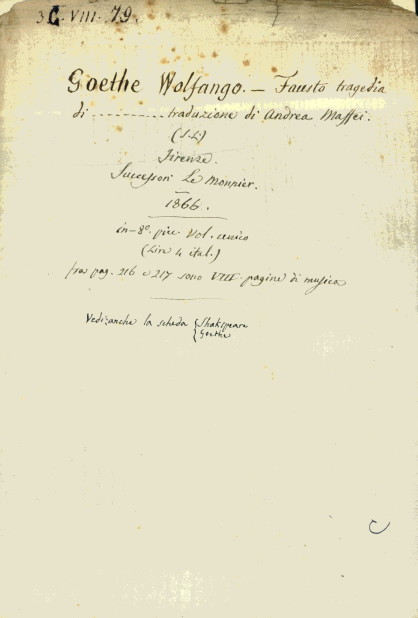 3 C. VIII. 79.
Goethe Wolfango. — Fausto tragedia
di .............. traduzione di Andrea Maffei.
Firenze.
Successori Le Monnier.
1866.
in-8º. picc. Vol. unico
(Lire 4 ital.)
fra pag. 216 e 217 sono VIII pagine di musica
Vedi anche la scheda { Shakspeare
{ Goethe
C